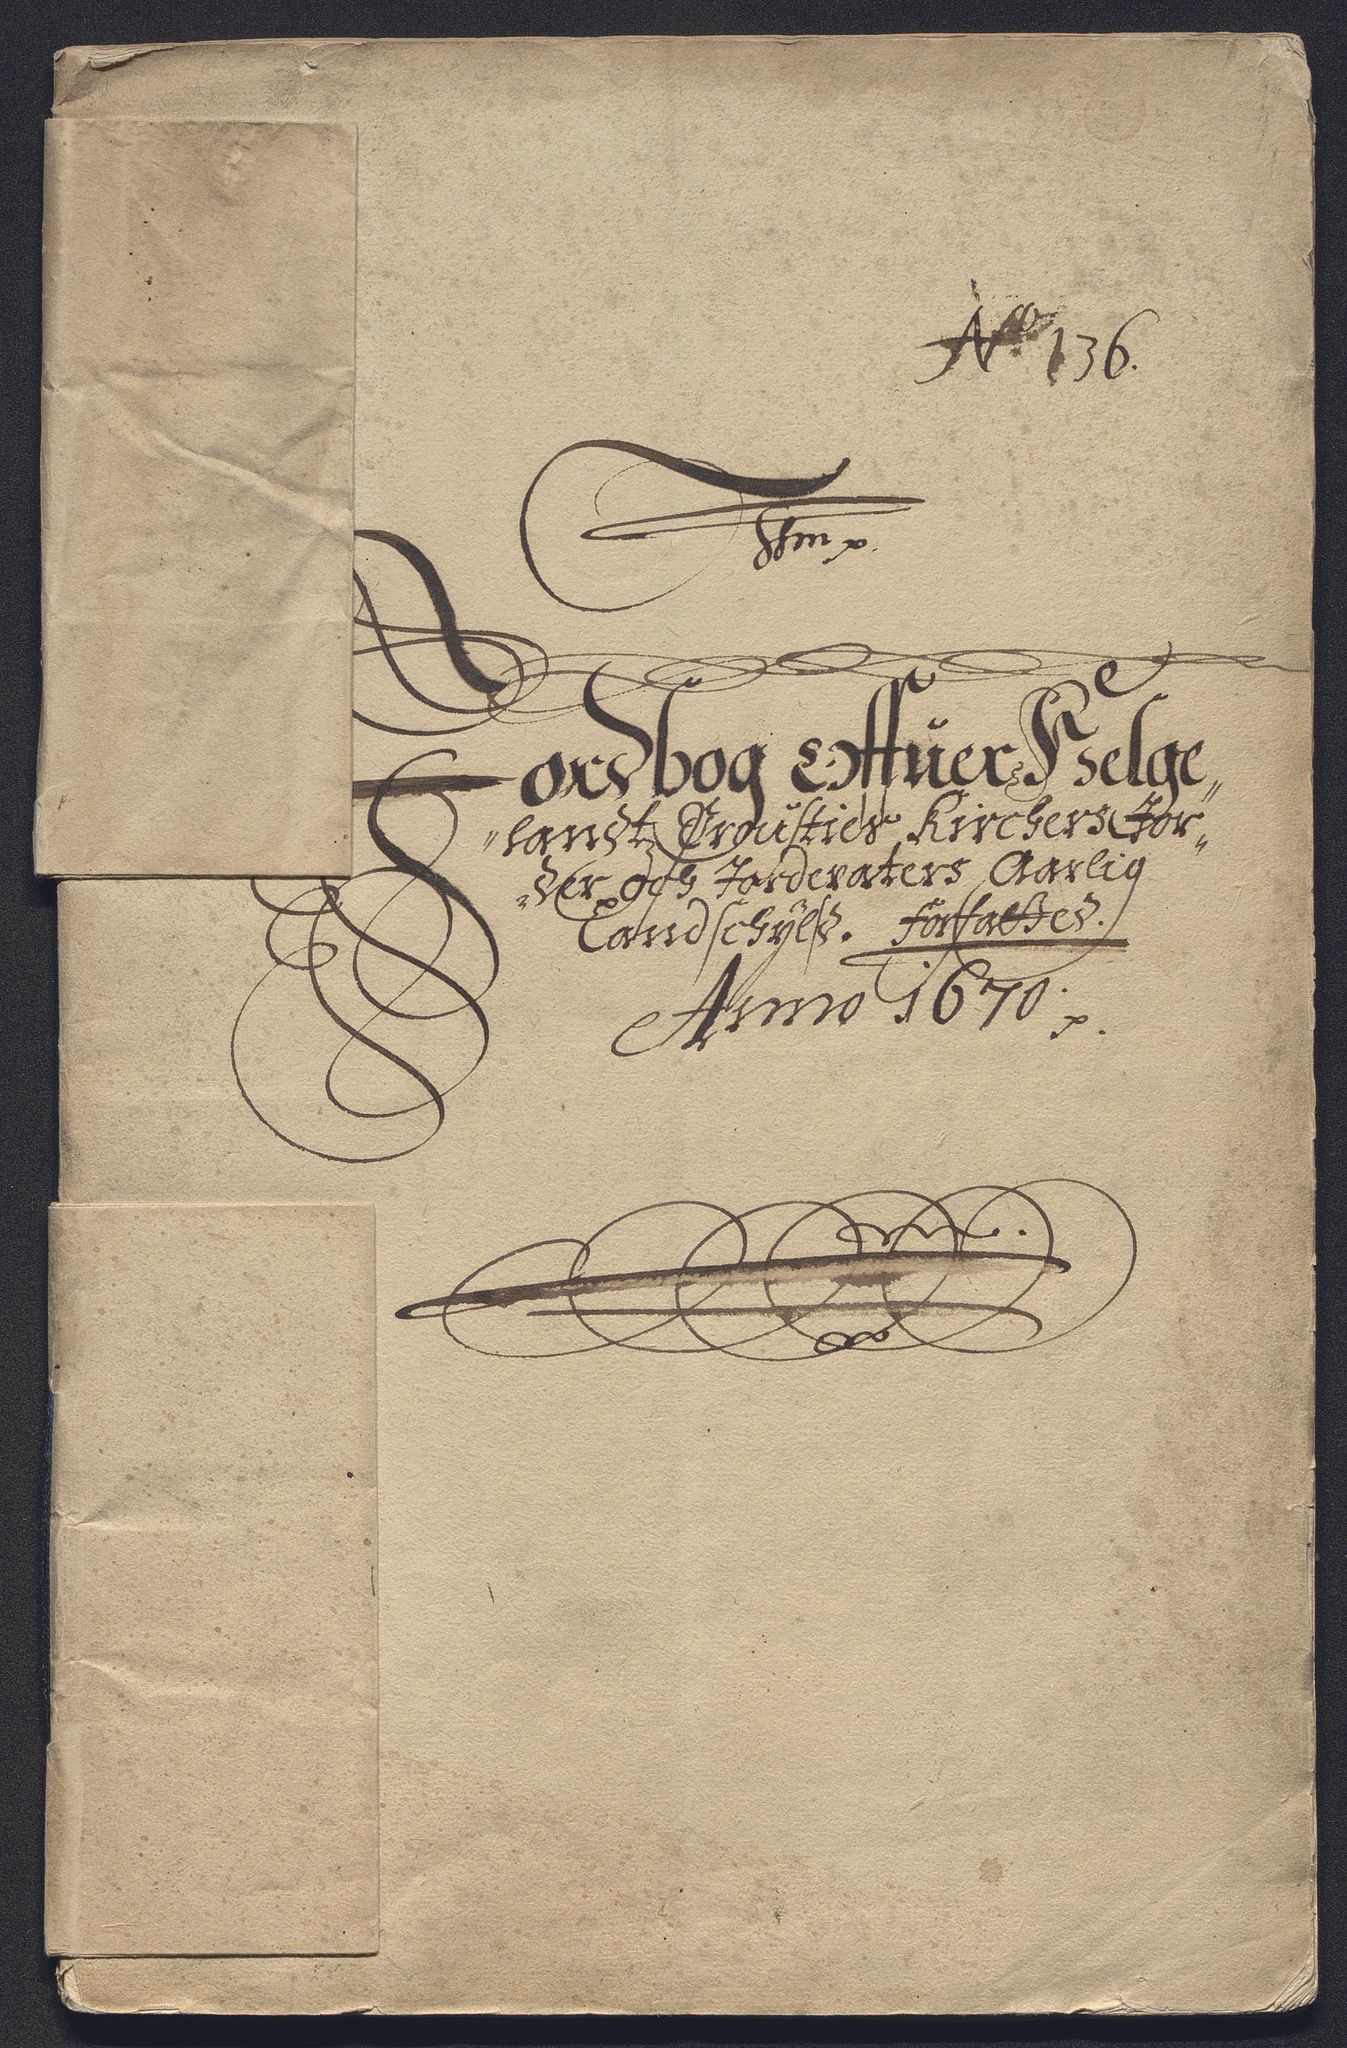 No 136.
Jordbog Offuer Helge
landtz Prousties Kirchers Jor
der och Jordevaters Aarlig
Landschyld. forfattet.
Anno 1670.